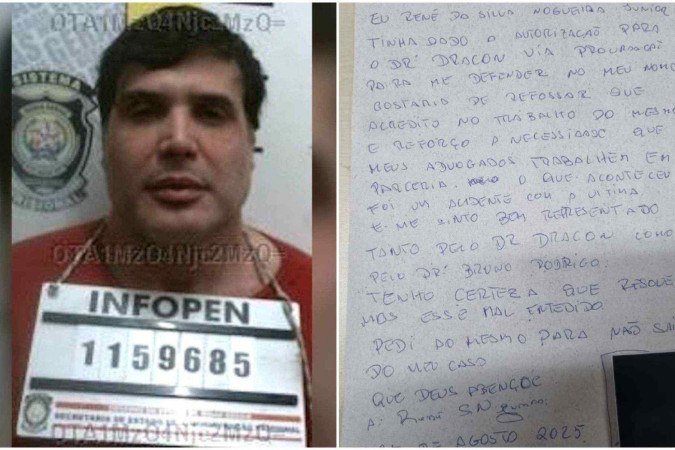 OTA1MzQ4Njc2MzQ=
SISTEMA
OTA1MzQ4Njc2MzQ=
INFOPEN
1159685
OTA1MzQ4Njc2MzQ=
EU RENÉ DA SILVA NOGUEIRA JUNIOR
TINHA DADO A AUTORIZAÇÃO PARA
O DR DRACON VIA PROCURAÇÃ
PARA ME DEFENDER NO MEU NOME
GOSTARIA DE REFOSSAR QUE
ACREDITO NO TRABALHO DO MESMO
E REFORÇO A NECESSIDADE QUE
MEUS ADVOGADOS TRABALHEM EM
PARCERIA. O QUE ACONTECEU
FOI UM ACIDENTE COM A VITIMA.
E ME SINTO BEM REPRESENTADO
TANTO PELO DR DRACON COMO
PELO DR BRUNO RODRIGO.
TENHO CERTEZA QUE RESOLVE
MOS ESSE MAL ENTEDIDO
PEDI AO MESMO PARA NÃO SAI
DO MEU CASO
QUE DEUS ABENÇOE
A: René SN
DE AGOSTO 2025.